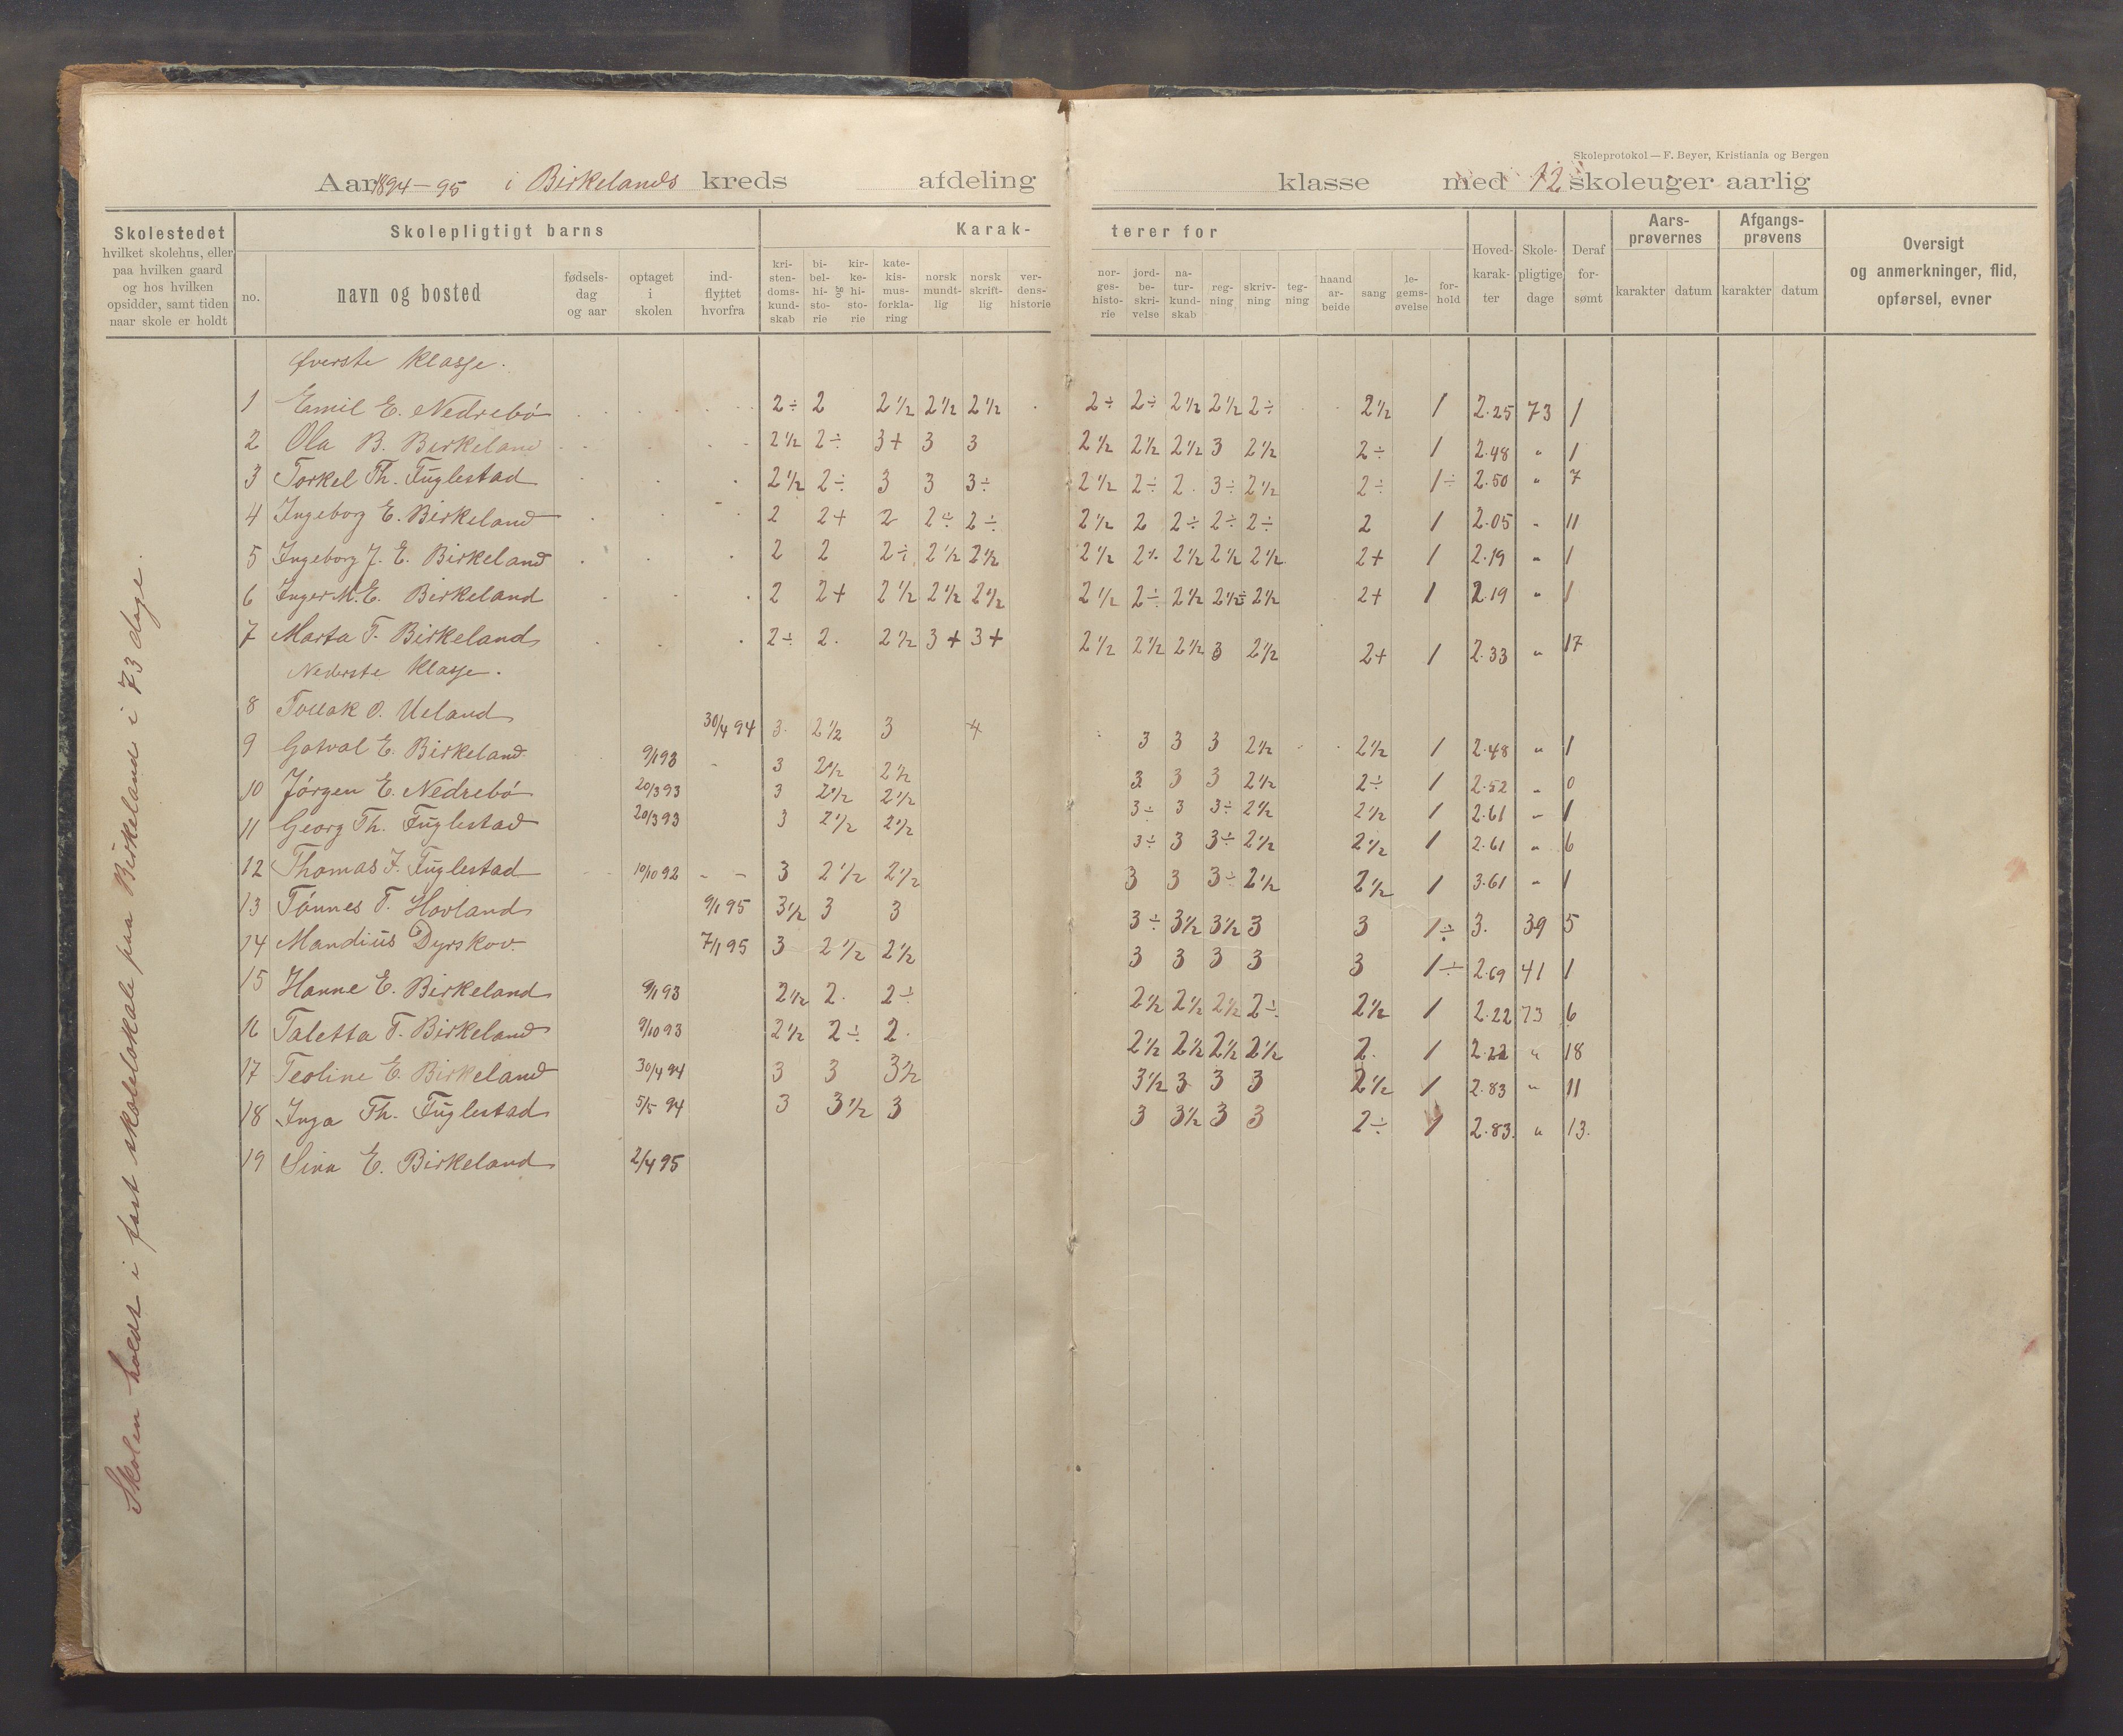 Skoleprotokol — F. Beyer, Kristiania og Bergen
Aar 1894-95 i Birkelands kreds afdeling klasse med 12 skoleuger aarlig
Skolestedet
hvilket skolehus, eller
paa hvilken gaard
og hos hvilken
opsidder, samt tiden
naar skole er holdt
Skolepligtigt barns
no.
navn og bosted
fødsels-
dag
og aar
optaget
i
skolen
ind-
flyttet
hvorfra
Karak-
terer for
kri-
sten-
doms-
kund-
skab
bi-
bel-
hi-
sto-
rie
og
kir-
ke-
hi-
sto-
rie
kate-
kis-
mus-
forkla-
ring
norsk
mundt-
lig
norsk
skrift-
lig
ver-
dens-
historie
nor-
ges-
histo-
rie
jord-
be-
skri-
velse
na-
tur-
kund-
skab
reg-
ning
skriv-
ning
teg-
ning
haand
ar-
beide
sang
le-
gems-
øvelse
for-
hold
Hoved-
karak-
ter
Skole-
pligtige
dage
Deraf
for-
sømt
Aars-
prøvernes
karakter datum
Afgangs-
prøvens
karakter datum
Oversigt
og anmerkninger, flid,
opførsel, evner
Skolen holdt i fast skolelokale paa Birkeland i 73 dage.
Øverste klasse.
1 Emil E. Nedrebö 2÷ 2 2½ 2½ 2½ 2÷ 2÷ 2½ 2½ 2÷ 2½ 1 2.25 73 1
2 Ola B. Birkeland 2½ 2÷ 3+ 3 3 2½ 2½ 2½ 3 2½ 2÷ 1 2.48 " 1
3 Torkel Th. Fuglestad 2½ 2÷ 3 3 3÷ 2½ 2÷ 2. 3÷ 2½ 2÷ 1÷ 2.50 " 7
4 Ingeborg E. Birkeland 2 2+ 2 2÷ 2÷ 2½ 2 2÷ 2÷ 2÷ 2 1 2.05 " 11
5 Ingeborg J. E. Birkeland 2 2 2÷ 2½ 2½ 2½ 2÷ 2½ 2½ 2½ 2+ 1 2.19 " 1
6 Inger M. E. Birkeland 2 2+ 2½ 2½ 2½ 2½ 2÷ 2½ 2½÷ 2½ 2+ 1 2.19 " 1
7 Marta T. Birkeland 2÷ 2. 2½ 3+ 3+ 2½ 2½ 2½ 3 2½ 2+ 1 2.33 " 17
Nederste klasse.
8 Tollak O. Ueland 30/4 94 3. 2½ 3 4 3 3 3 2½ 2½ 1 2.48 " 1
9 Gotval E. Birkeland 9/1 93 3 2½ 2½ 3 3 3 2½ 2÷ 1 2.52 " 0
10 Jörgen E. Nedrebö 20/3 93 3 2½ 2½ 3÷ 3 3÷ 2½ 2½ 1 2.61 " 1
11 Georg Th. Fuglestad 20/3 93 3 2½ 2½ 3÷ 3 3÷ 2½ 2½ 1 2.61 " 6
12 Thomas J. Fuglestad 10/10 92 3 2½ 2½ 3 3 3÷ 2½ 2½ 1 3.61 " 1
13 Tönnes T. Hovland 9/1 95 3½ 3 3 3÷ 3½ 3½ 3 3 1÷ 3. 39 5
14 Mandius Dyrskov. 7/1 95 3 2½ 2½ 3 3 3 3 3 1÷ 2.69 41 1
15 Hanne E. Birkeland 9/1 93 2½ 2. 2÷ 2½ 2½ 2½ 2÷ 2½ 1 2.22 73 6
16 Taletta T. Birkeland 9/10 93 2½ 2÷ 2. 2½ 2½ 2½ 2½ 2. 1 2.22 " 18
17 Teoline E. Birkeland 30/4 94 3 3 3½ 3½ 3 3 3 2½ 1 2.83 " 11
18 Inga Th. Fuglestad 5/5 94 3 3½ 3 3 3½ 3 3 2÷ 1 2.83. " 13.
19 Sina E. Birkeland 2/4 95